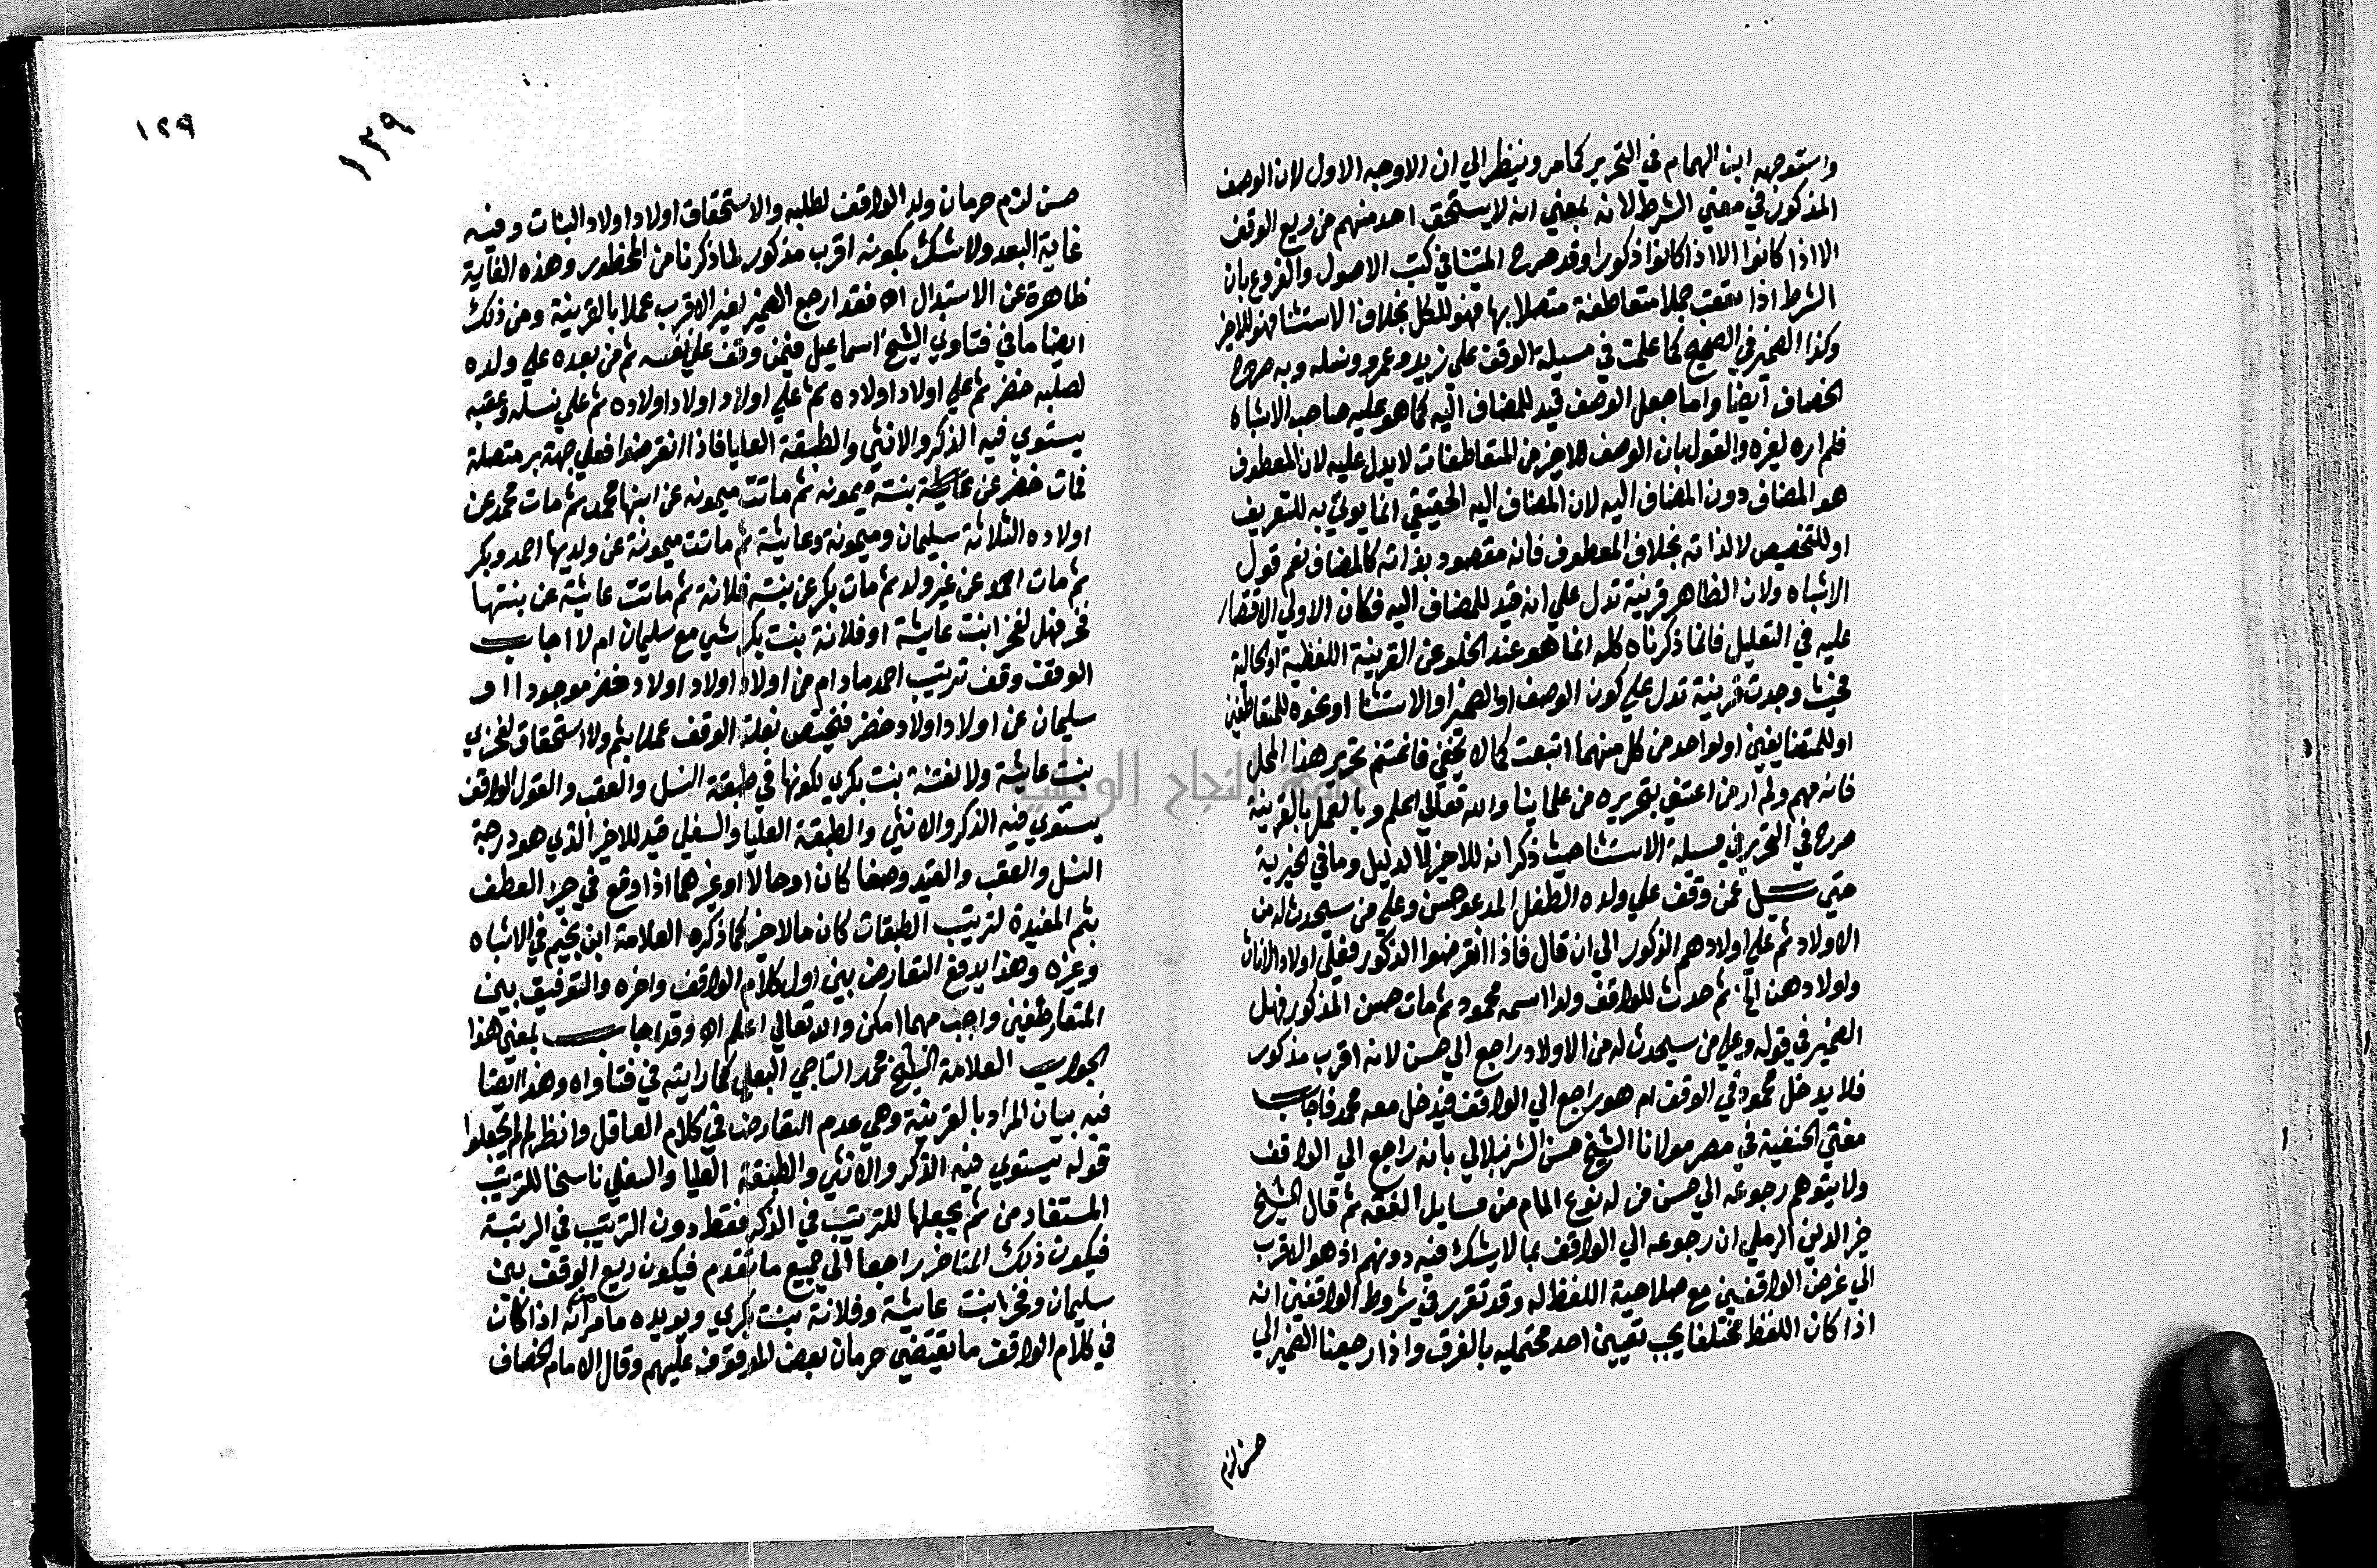 واستوجهه ابن الهمام في التحرير كما مر وينظر الي ان الاوجه الاول لان الوصف
المذكور في معني الشرط لانه بمعني انه لا يستحق احد منهم من ريع الوقف
الا اذا كانوا الا اذا كانوا ذكورا وقد صرح ائمتنا في كتب الاصول والفروع بان
الشرط اذا تعقب جملا متعاطفة متصلا بها فهو للكل بخلاف الاستثنا فهو للاخير
وكذا الضمير في الصحيح كما علمت في مسيلة الوقف علي زيد وعمرو ونسله وبه صرح
الخصاف ايضا واما جعل الوصف قيد للمضاف اليه كما هو عليه صاحب الاشباه
فلم اره لغيره والقول بان الوصف للاخير من المتعاطفات لا يدل عليه لان المعطوف
هو المضاف دون المضاف اليه لان المضاف اليه الحقيقي انما يوتي به للتعريف
او للتخصيص لا لذاته بخلاف المعطوف فانه مقصود بذاته كالمضاف نعم قول
الاشباه ولان الظاهر قرينة تدل علي انه قيد للمضاف اليه فكان الاولي الاقتصار
عليه في التعليل فانما ذكرناه كله انما هو عند الخلو عن القرينة اللفظية او الحالية
فحيث وجدت قرينة تدل علي كون الوصف او الضمير او الاستثنا او نحوه للمتعاطفين
او للمتضايفين او لواحد من كل منهما اتبعت كما لا يخفي فاغتنم تحرير هذا المحل
فانه مهم ولم ار من اعتني بتحريره من علماينا والله تعالي اعلم وبالعمل بالقرينة
صرح في التحرير في مسيلة الاستثنا حيث ذكر انه للاخير الا لدليل وما في الخيرية
حتي سيل عمن وقف علي ولده الطفل المدعو حسن وعلي من سيحدث له من
الاولاد ثم علي اولادهم الذكور الي ان قال فاذا انقرضوا الذكور فعلي اولاد الاناث
ولولادهن الخ ثم حدث للواقف ولدا اسمه محمود ثم مات حسن المذكور فهل
الضمير في قوله وعلي من سيحدث له من الاولاد راجع الي حسن لانه اقرب مذكور
فلا يدخل محمود في الوقف ام هو راجع الي الواقف فيدخل معه محمد فاجاب
مفتي الحنفية في مصر مولانا الشيخ حسن الشرنبلالي بانه راجع الي الواقف
ولا يتوهم رجوعه الي حسن من له نوع المام من مسايل الفقه ثم قال الشيخ
خير الدين الرملي ان رجوعه الي الواقف بما لا يشك فيه دونهم اذ هو الاقرب
الي غرض الواقفين مع صلاحية اللفظ له وقد تقرر في شروط الواقفين انه
اذا كان اللفظ مختلفا يجب تعيين احد محتمليه بالغرف واذا رجعنا الضمير الي
حسن لزم
١٢٩
١٢٩
حسن لزم حرمان ولد الواقف لصلبه والاستحقاق اولاد اولاد البنات وفيه
غاية البعد ولا شك بكونه اقرب مذكور لما ذكرنا من المحظور وهذه الغاية
ظاهرة عن الاستبدال اه فقد ارجع الضمير لغير الاقرب عملا بالقرينة ومن ذلك
ايضا ما في فتاوي الشيخ اسماعيل فيمن وقف علي نفسه ثم من بعده علي ولده
لصلبه خضر ثم علي اولاد اولاده ثم علي اولاد اولاد اولاده ثم علي نسله وعقبه
يستوي فيه الذكر والانثي والطبقة العليا فاذا انقرضوا فعلي جهة بر متصلة
فمات خضر عن عايشة بنته ميمونه ثم ماتت ميمونه عن ابنها محمد ثم مات محمد عن
اولاده الثلاثة سليمان وميمونة وعايشة ثم ماتت ميمونة عن ولديها احمد وبكر
ثم مات احمد عن غير ولد ثم مات بكر عن بنته فلانة ثم ماتت عايشة عن بنتها
فخر فهل لفخر ابنت عايشة او فلانة بنت بكر شي مع سليمان ام لا اجاب
الوقف وقف ترتيب احمد مادام من اولاد اولاد اولاد خضر موجودا او
سليمان عن اولاد اولاد خضر فيختص بغلة الوقف عملا بثم ولا استحقاق لفخري
بنت عايشة ولا لفتنة بنت بكري لكونها في طبقة النسل والعقب والقول الواقف
يستوي فيه الذكر والانثي والطبقة العليا والسفلي قيد للاخير الذي هو درجة
النسل والعقب والقيد وصفا كان او حالا او غيرهما اذا وقع في حيز العطف
بثم المفيدة لترتيب الطبقات كان مالاخير كما ذكره العلامة ابن نجيم في الاشباه
وغيره وهذا يدفع التعارض بين اول كلام الواقف واخره والتوفيق بين
المتعارضين واجب مهما امكن والله تعالي اعلم اه وقد اجاب بمعني هذا
الجواب العلامة الشيخ محمد التاجي البعلي كما رايته في فتاواه وهذا ايضا
فيه بيان المراد بالقرينة وهي عدم التعارض في كلام العاقل وانظر لم لم يجعلوا
قوله يستوي فيه الذكر والانثي والطبقة العليا والسفلي ناسخا للترتيب
المستفاد من ثم بجعلها للترتيب في الذكر فقط دون الترتيب في الرتبة
فيكون ذلك المتاخر راجعا الي جميع ما تقدم فيكون ريع الوقف بين
سليمان وفخر ابنت عايشة وفلانة بنت بكري ويويده ما مر انه اذا كان
في كلام الواقف ما يقتضي حرمان بعض الموقوف عليهم وقال الامام الخصاف
جامعة النجاح الوطنية